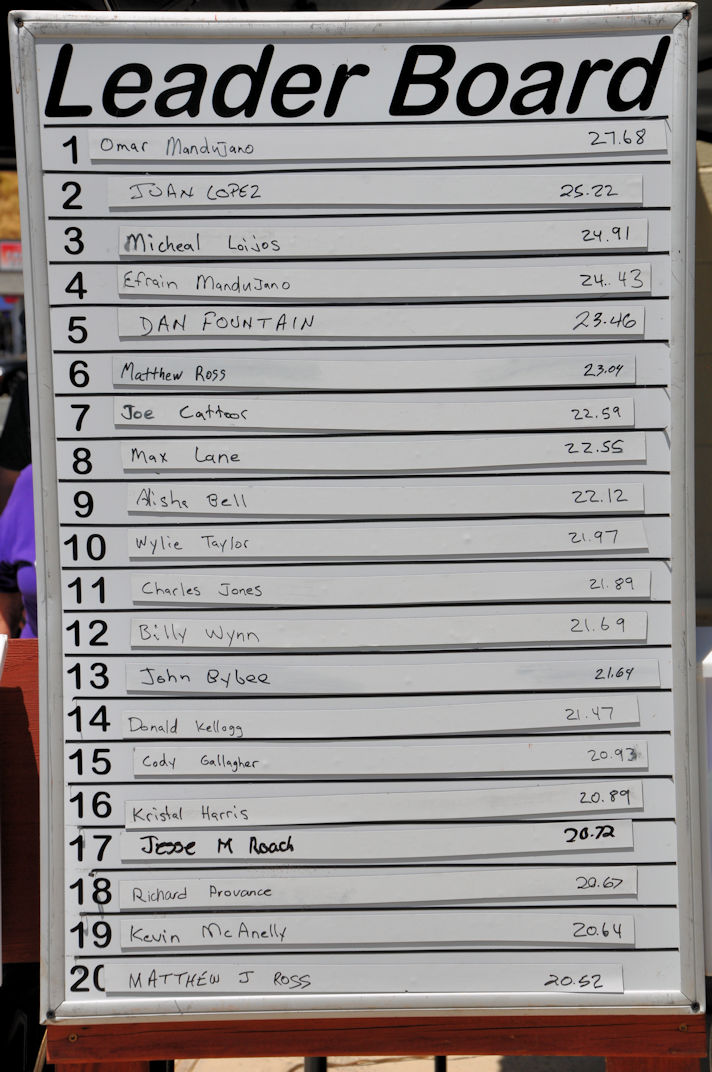 Leader Board
1 Omar Mandujano 27.68
2 JUAN LOPEZ 25.22
3 Micheal Loijos 24.91
4 Efrain Mandujano 24.43
5 DAN FOUNTAIN 23.46
6 Matthew Ross 23.04
7 Joe Cattoor 22.59
8 Max Lane 22.55
9 Alisha Bell 22.12
10 Wylie Taylor 21.97
11 Charles Jones 21.89
12 Billy Wynn 21.69
13 John Bybee 21.64
14 Donald Kellogg 21.47
15 Cody Gallagher 20.93
16 Kristal Harris 20.89
17 Jesse M Roach 20.72
18 Richard Provance 20.67
19 Kevin McAnelly 20.64
20 MATTHEW J ROSS 20.52